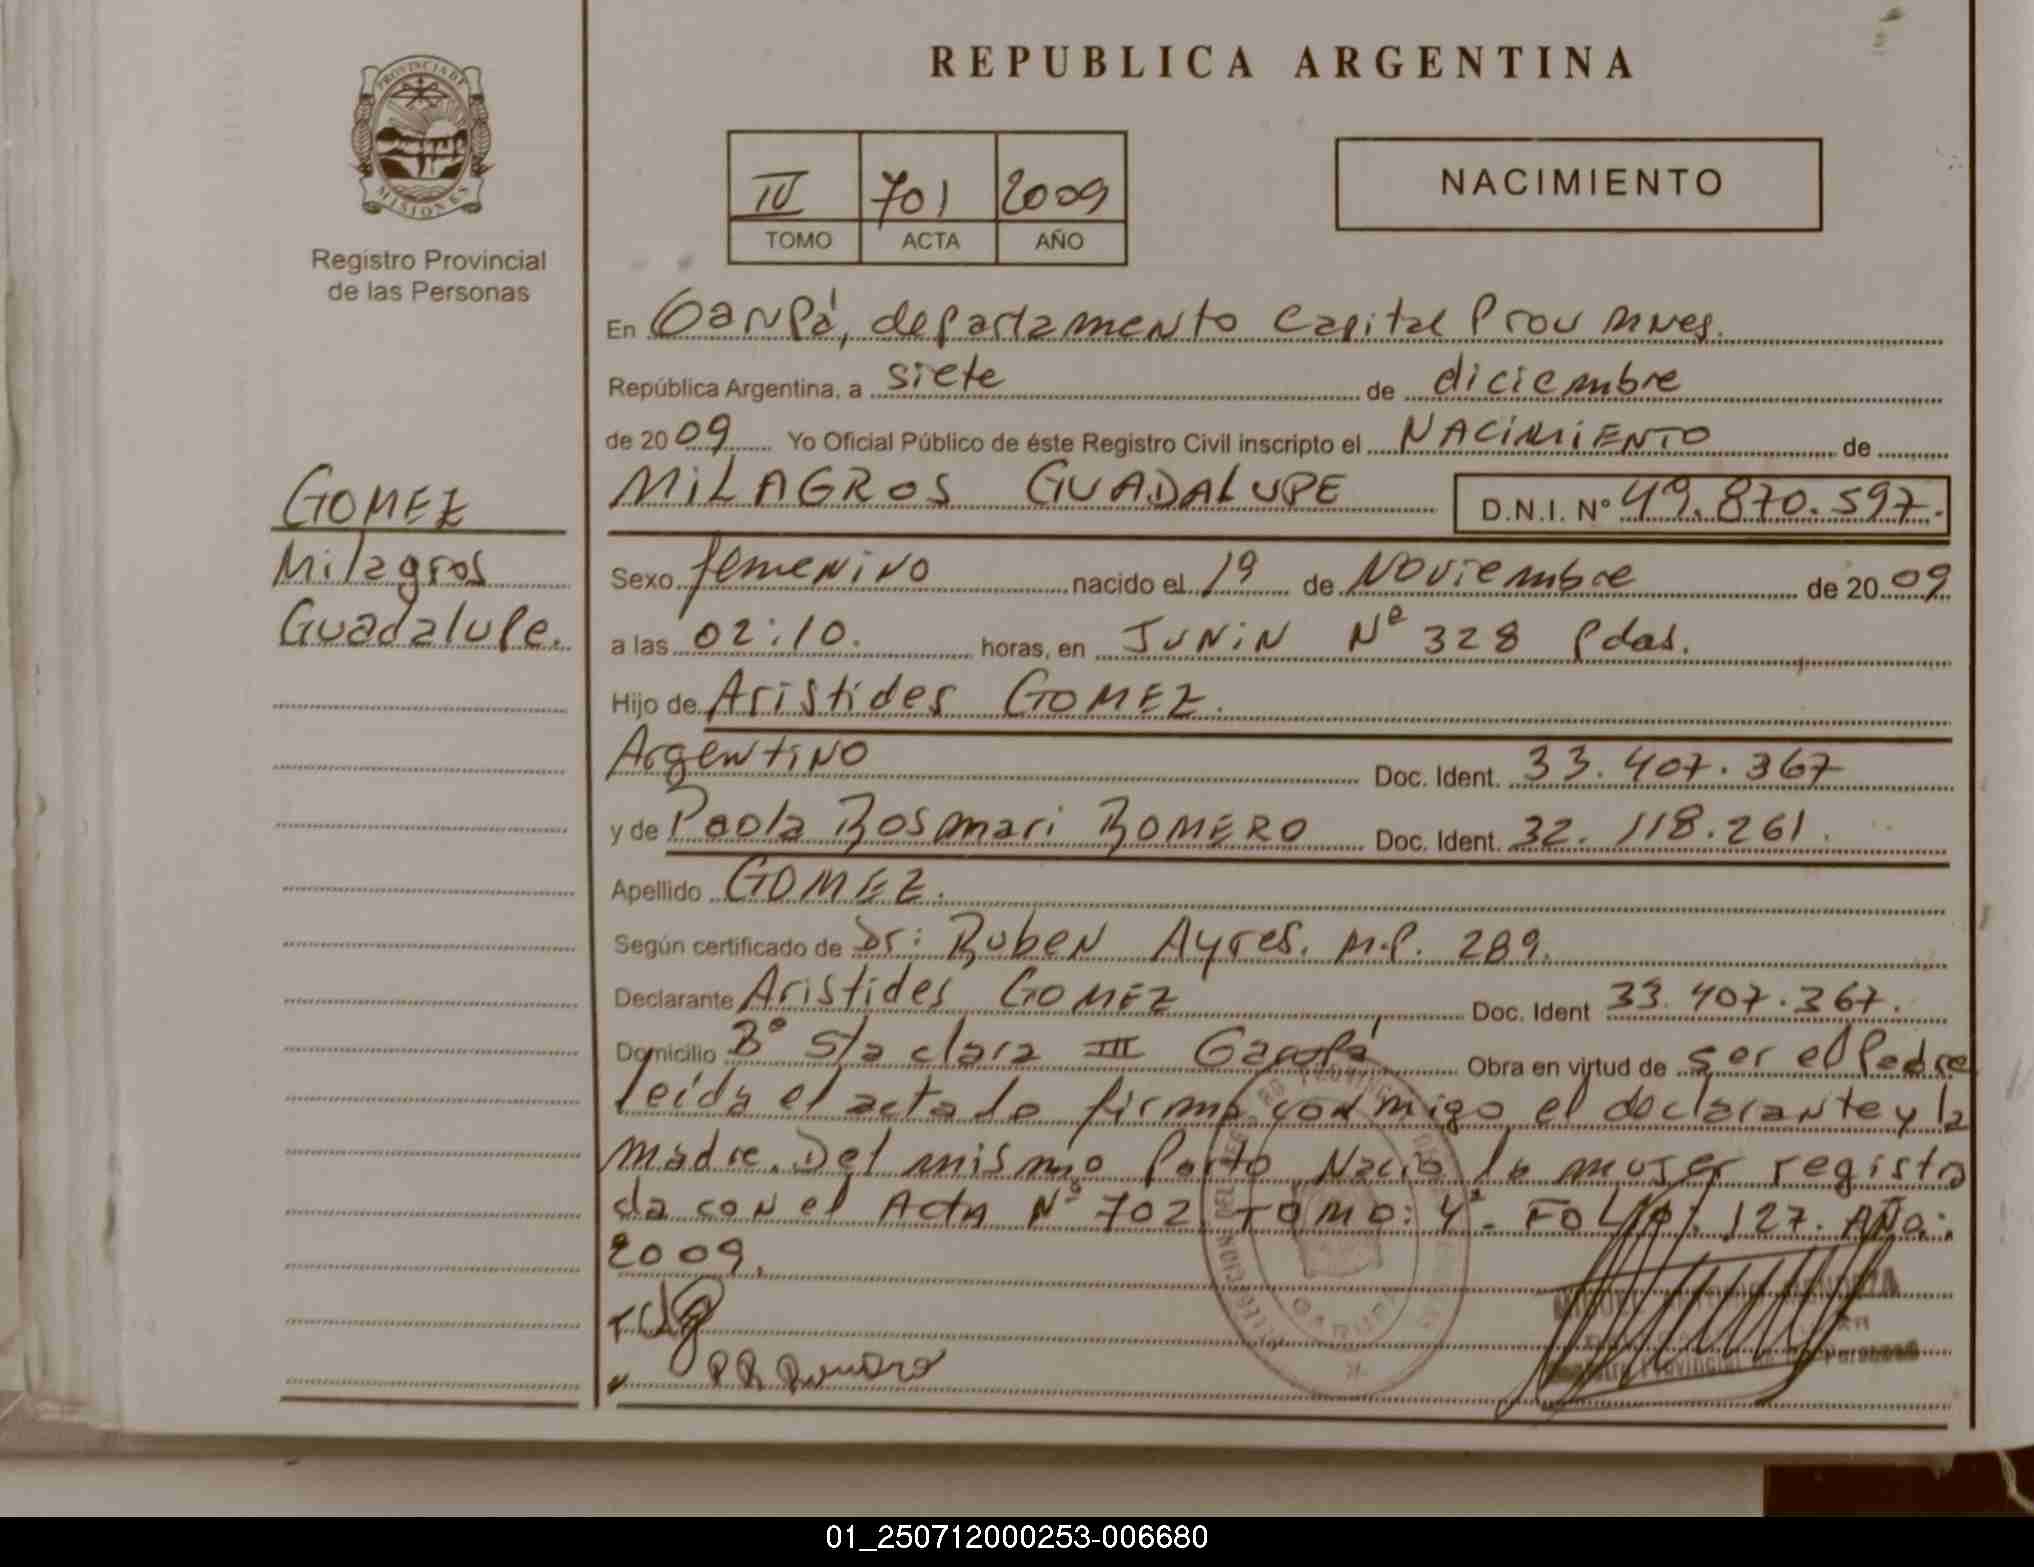 REPUBLICA ARGENTINA
PROVINCIA DE
MISIONES
Registro Provincial
de las Personas
IV 701 2009
TOMO ACTA AÑO
NACIMIENTO
En Garupá, departamento Capital Prov Mnes.
República Argentina, a siete de diciembre
de 2009 Yo Oficial Público de éste Registro Civil inscripto el NACIMIENTO de
MILAGROS GUADALUPE D.N.I. N° 49.870.597.
GOMEZ
Milagros
Guadalupe.
Sexo femenino nacido el 19 de Noviembre de 2009
a las 02:10. horas, en JUNIN Nº 328 Pdas.
Hijo de Aristides GOMEZ.
Argentino Doc. Ident. 33.407.367
y de Paola Rosmari ROMERO Doc. Ident. 32.118.261.
Apellido GOMEZ.
Según certificado de Dr: Ruben Ayres. M.P. 289.
Declarante Aristides GOMEZ Doc. Ident 33.407.367.
Domicilio Bº Sta clara III Garupá Obra en virtud de ser el Padre
leida el acta la firma conmigo el declarante y la
madre. Del mismo Parto Nacio la mujer registra
da con el Acta Nº 702 TOMO: 4º. FOLIO: 127. AÑO:
2009.
P R Romero
GARUPA
Registro Provincial de las Personas
01_250712000253-006680